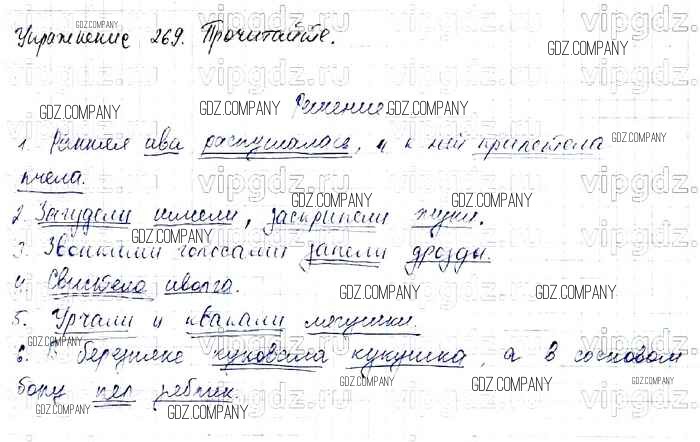 Упражнение 269. Прочитайте.
Решение.
1. Ранняя ива распушалась, и к ней прилетела
пчела.
2. Загудели шмели, заскрипели жуки.
3. Звонкими голосами запели дрозды.
4. Свистела иволга.
5. Урчали и квакали лягушки.
6. В березняке куковала кукушка, а в сосновом
бору пел рябчик.
GDZ.COMPANY
vipgdz.ru